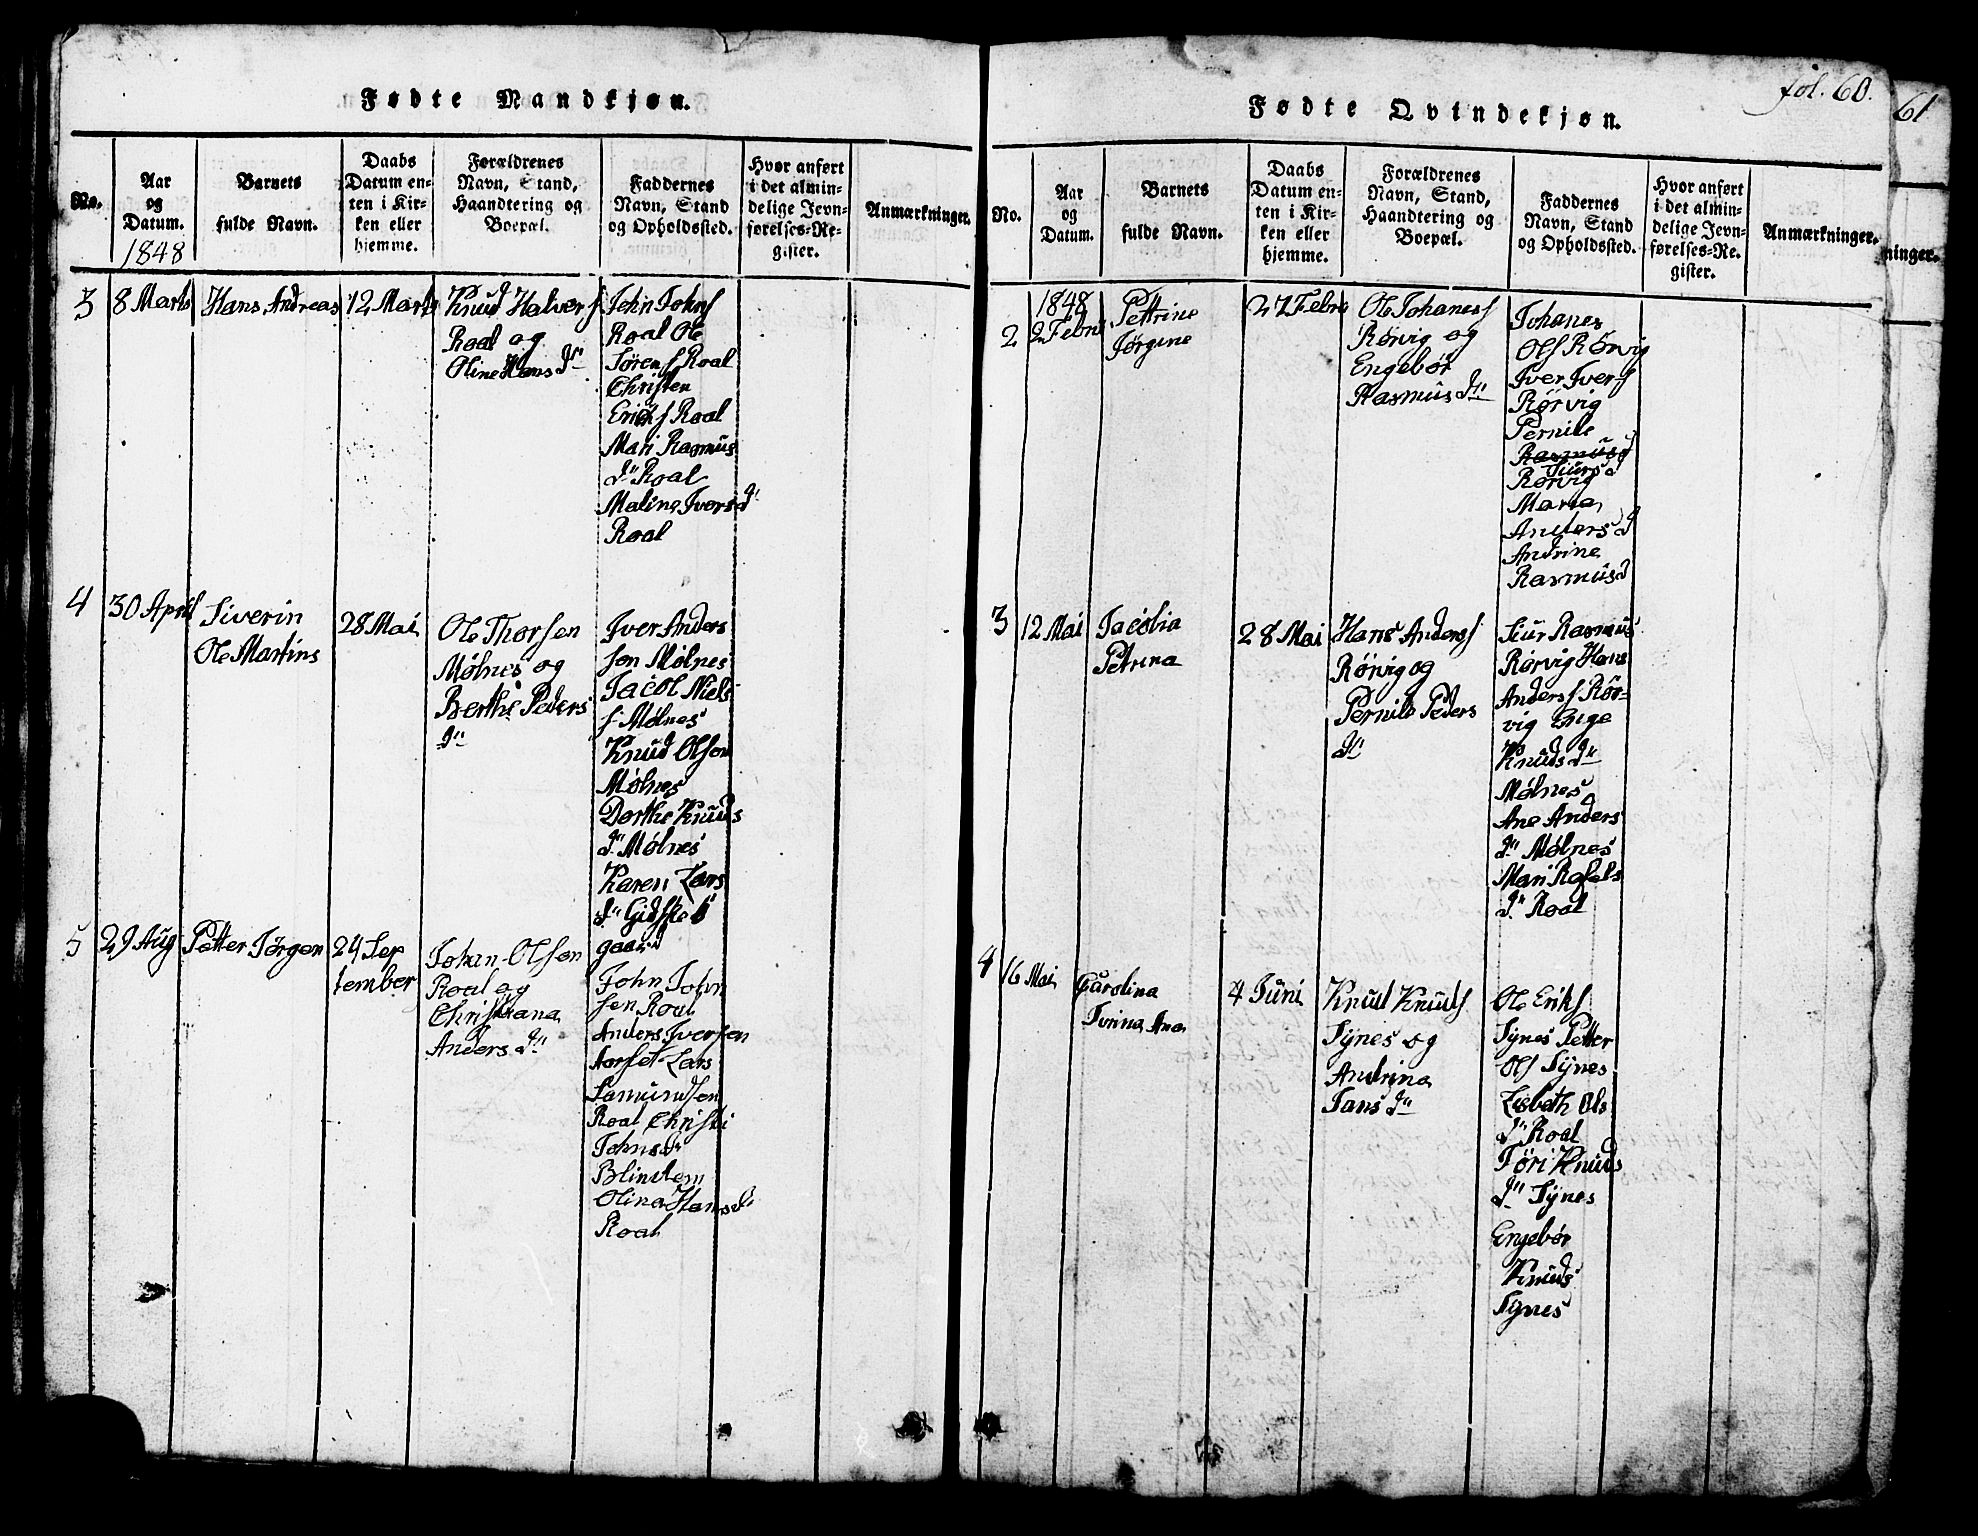 Fødte Mandkjøn.
No.
Aar
og
Datum.
1848
Barnets
fulde Navn.
Daabs
Datum en-
ten i Kir-
ken eller
hjemme.
Forældrenes
Navn, Stand,
Haandtering og
Boepæl.
Faddernes
Navn, Stand
og Opholdssted.
Hvor anført
i det almin-
delige Jevn-
førelses-Re-
gister.
Anmærkninger.
3
8 Marts
Hans Andreas
12 Marts
Knud Halvors
Roal og
Oline Hans Dr
John Johns
Roal Ole
Sørens Roal
Christen
Eriks Roal
Mari Rasmus
Dr Roal
Maline Ivers Dr
Roal
4
30 April
Siverin
Ole Martins
28 Mai
Ole Thorsen
Mølnes og
Berthe Peders
Dr
Iver Anders
sen Mølnes
Jacob Niels
s Mølnes
Knud Olsen
Mølnes
Dorthe Knuds
Dr Mølnes
Karen Lars
Dr Gidske
gaard
5
29 Aug
Petter Jørgen
24 Sep
tember
Johan Olsen
Roal og
Christiana
Anders Dr
John John
sen Roal
Anders Iversen
Lars
Samundsen
Roal Christi
Johnsdr
Blindem
Olina Hansdr
Roal
fol. 60.
61
Fødte Qvindekjøn.
No.
Aar
og
Datum.
Barnets
fulde Navn.
Daabs
Datum en-
ten i Kir-
ken eller
hjemme.
Forældrenes
Navn, Stand,
Haandtering og
Boepæl.
Faddernes
Navn, Stand
og Opholdssted.
Hvor anført
i det almin-
delige Jevn-
førelses-Re-
gister.
Anmærkninger.
ninger.
2
1848
2 Febru
Pettrine
Jørgine
27 Febru
Ole Johaness
Rørvig og
Engebør
Rasmus Dr
Johanes
Ols Rørvig
Iver Ivers
Rørvig
Pernile
Rasmusd
Siursd
Rørvig
Maria
Andersd
Andrine
Rasmusd
3
12 Mai
Jacobia
Petrina
28 Mai
Hans Anderss
Rørvig og
Pernile Peders
Dr
Siur Rasmus
Rørvig Hans
Anders s Rør-
vig Inge
Knuds Dr
Mølnes
Ane Anders
Dr Mølnes
Mari Rafels
Dr Roal
4
16 Mai
Garolina
Ana
4 Juni
Knud Knuds
Synes og
Andrina
Jans Dr
Ole Eriks
Synes Petter
Ols Synes
Lisbeth Ols
Dr Roal
Jøri Knuds
Dr Synes
Engebør
Knuds
Synes